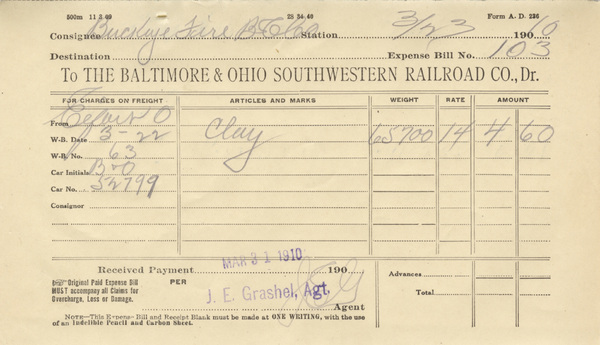 500m 11 3 09 28 54 40 Form A. D. 236
Consignee Buckeye Fire B & C Co Station 3/23 1900
Destination Expense Bill No. 103
To THE BALTIMORE & OHIO SOUTHWESTERN RAILROAD CO., Dr.
FOR CHARGES ON FREIGHT ARTICLES AND MARKS WEIGHT RATE AMOUNT
From O
W-B. Date 3-22 Clay 65700 14 4 60
W-B. No. 63
Car Initials B&O
Car No. 52799
Consignor
MAR 31 1910
Received Payment 190 Advances
Original Paid Expense Bill PER
MUST accompany all Claims for
Overcharge, Loss or Damage. J. E. Grashel, Agt. Total
Agent
NOTE—This Expense Bill and Receipt Blank must be made at ONE WRITING, with the use
of an Indelible Pencil and Carbon Sheet.